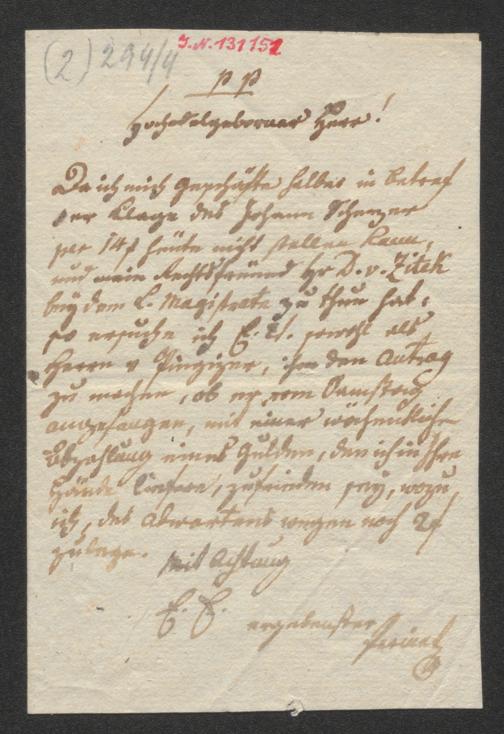 (2) 294/4
J.N. 131152
pp
Hochedelgeborner Herr!
Da ich mich Geschäfte halber in Betref
der Klage des Johann Scherzer
per 14 f heute nicht stellen kann,
und mein Rechtsfreund Hr D. v. Zitek
bey dem L. Magistrate zu thun hat;
so ersuche ich E. sowohl als
Herrn v, ihm den Antrag
zu machen, ob er vom Samstag
angefangen, mit einer wöchentlichen
Abzahlung eines Gulden, den ich in Ihre
Hände liefere, zufrieden sey, wozu
ich, des Abwartens wegen noch 2 f
zulege.
Mit Achtung
E.
ergebenster
Perinet